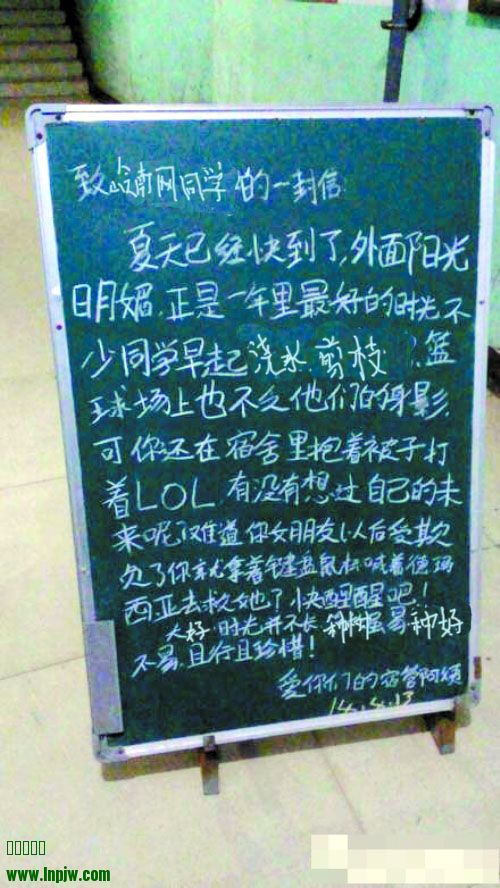 致岭南网同学的一封信
夏天已经快到了,外面阳光
明媚.正是一年里最好的时光不
少同学早起浇水.剪枝.篮
球场上也不乏他们的身影.
可你还在宿舍里抱着被子打
着LOL.有没有想过自己的未
来呢?难道你女朋友以后受欺
负了你就拿着键盘鼠标喊着德玛
西亚去救她了快醒醒吧!
大好时光并不长种树易种好
不易,且行且珍惜!
爱你们的宿管阿姨
14.4.13
www.lnpjw.com